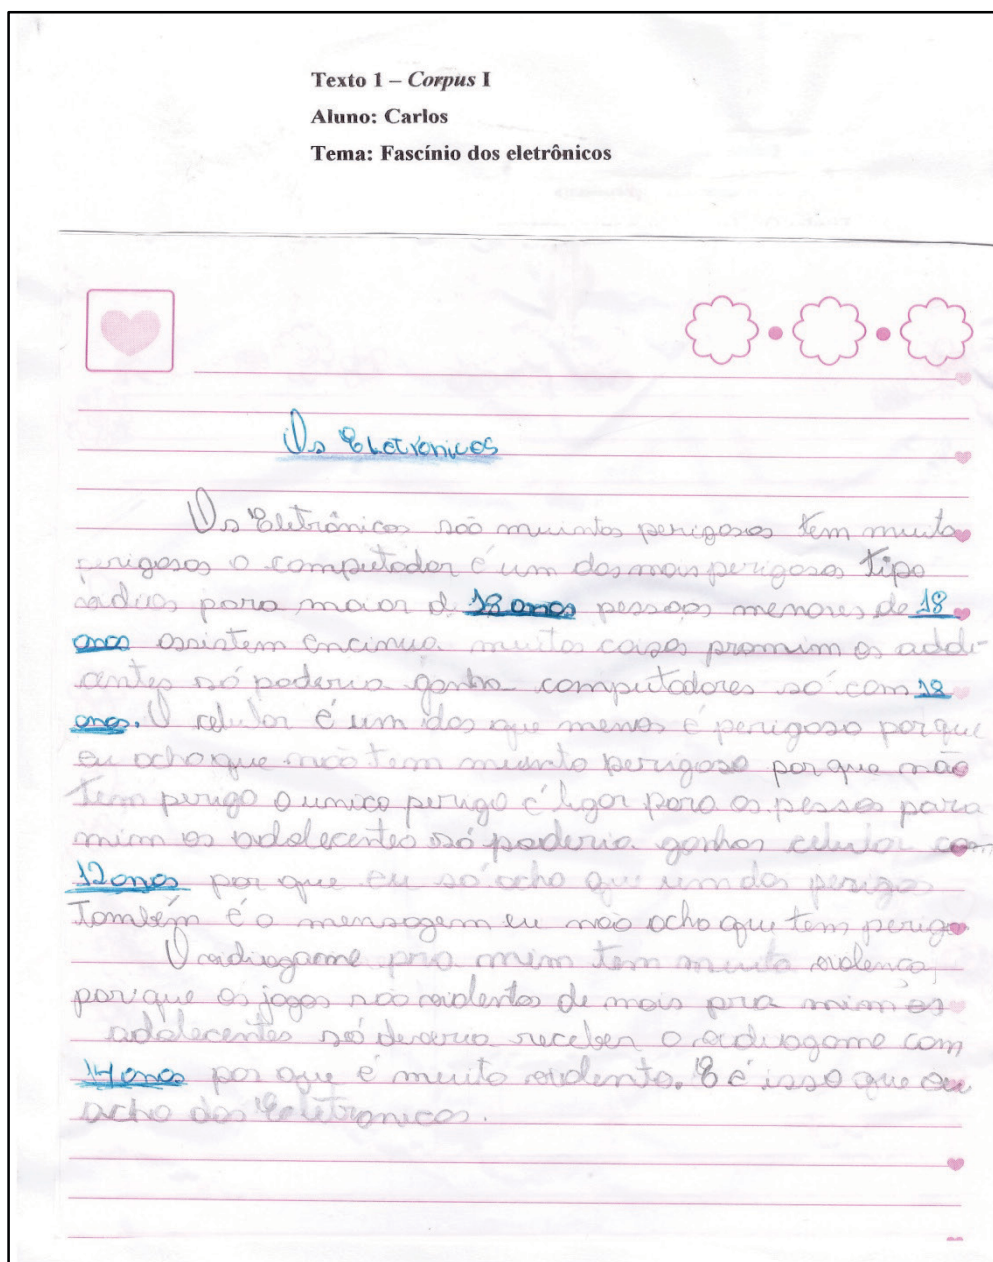 Texto 1 – Corpus I
Aluno: Carlos
Tema: Fascínio dos eletrônicos
Os Eletrônicos
Os Eletrônicos são muintos perigosos tem muito
perigosos o computador é um dos mais perigosos tipo
vidios para maior d 18 anos pessoas menores de 18
anos assistem encinua muitas coisas pramim os
só poderia ganha computadores só com 18
anos. O celular é um dos que menos é perigoso por que
eu acho que não tem muinto perigoso por que não
tem perigo o unico perigo é ligar para as pessoas para
mim os adolecentes só poderia ganhar celular com
12 anos por que eu só acho que um dos perigos
Também é o mensagem eu não acho que tem perigo
O vidiogame pra mim tem muita violenca,
por que os jogos são violentos de mais pra mim os
adolecentes só deveria receber o vidiogame com
14 anos por que é muito violento. E é isso que eu
acho dos Eletronicos.